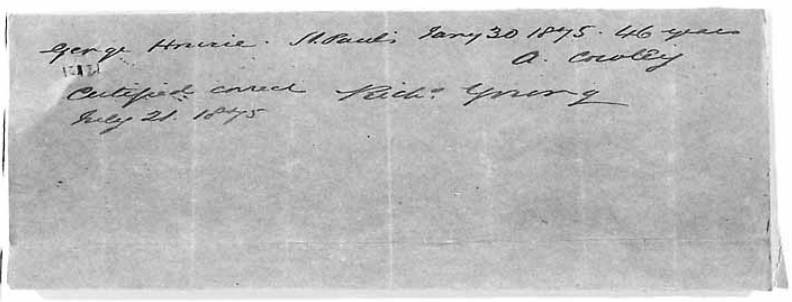 George Hourie. St. Paul's Jany 30 1875. 46 years
A. Cowley
Certified correct Richd. Young
July 21. 1875